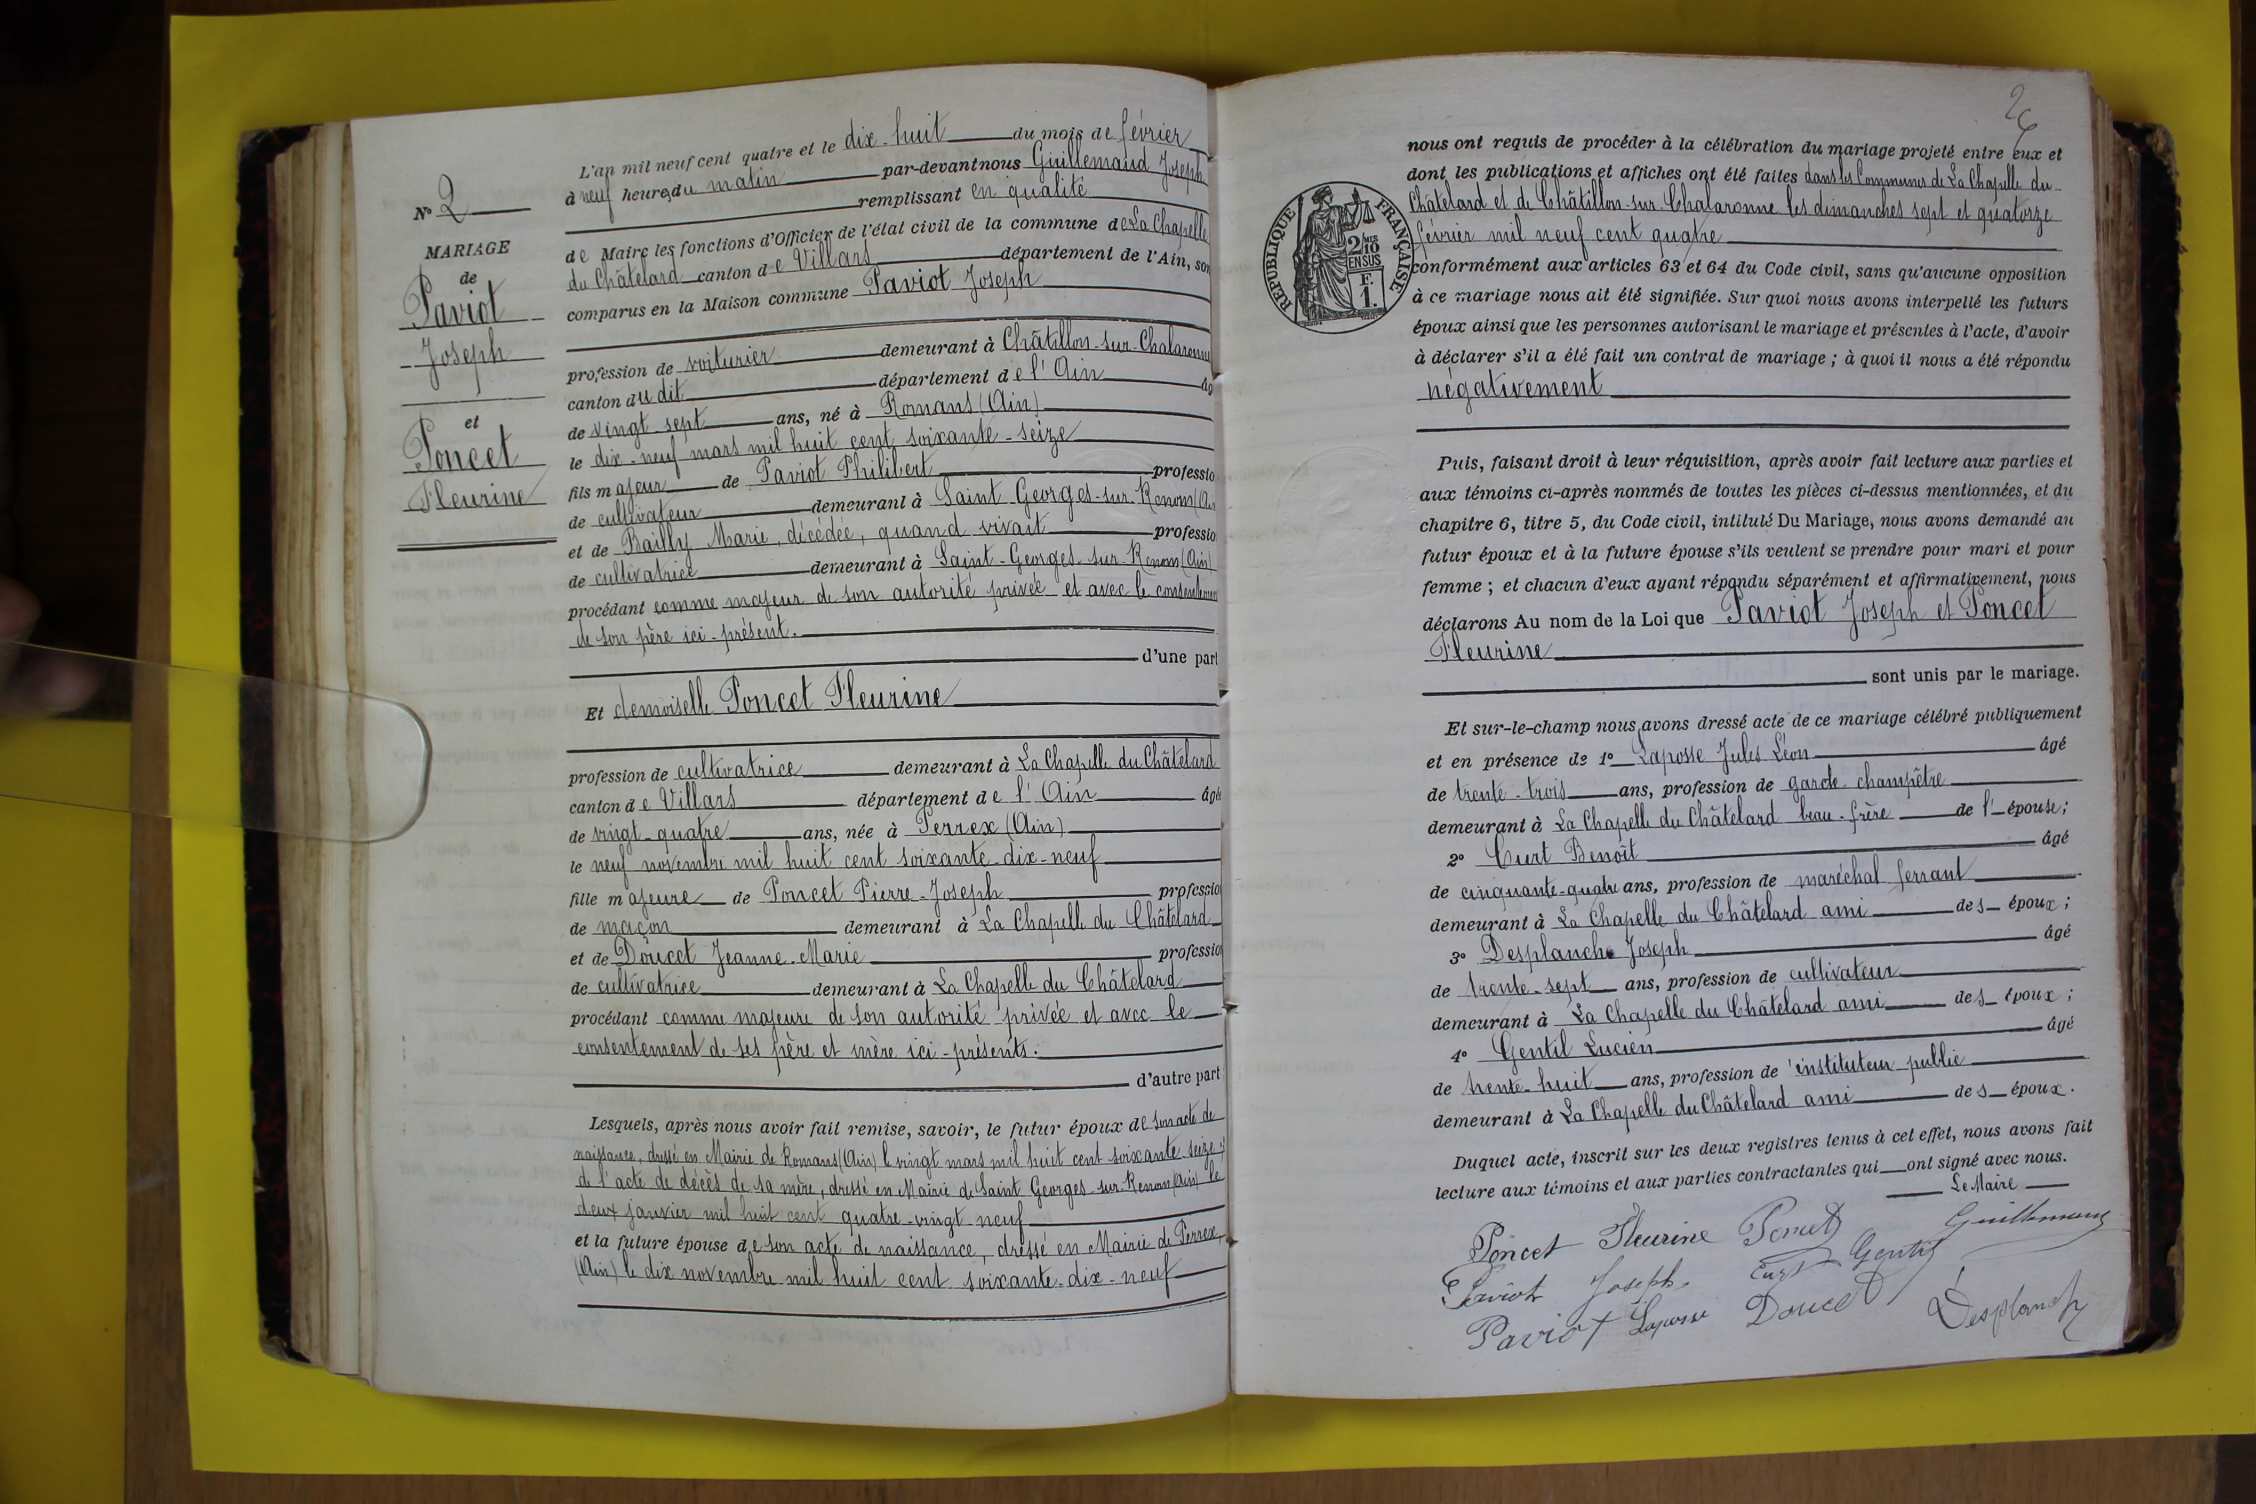 N° 2
MARIAGE
de
Paviot
Joseph
et
Poncet
Fleurine
L'an mil neuf cent quatre et le dix-huit du mois de février
à neuf heures du matin par-devant nous Guillemaud Joseph
remplissant en qualité
de Maire les fonctions d'Officier de l'état civil de la commune de La Chapelle
du Châtelard canton de Villars département de l'Ain, son
comparus en la Maison commune Paviot Joseph
profession de voiturier demeurant à Châtillon-sur-Chalaronne
canton du dit département de l'Ain âg
de vingt-sept ans, né à Romans (Ain)
le dix-neuf mars mil huit cent soixante-seize
fils majeur de Paviot Philibert professio
de cultivateur demeurant à Saint-Georges-sur-Renon (Ain
et de Bailly Marie, décédée, quand vivait professio
de cultivatrice demeurant à Saint-Georges-sur-Renon (Ain)
procédant comme majeur de son autorité privée et avec le consentement
de son père ici-présent.
d'une part
Et demoiselle Poncet Fleurine
profession de cultivatrice demeurant à La Chapelle du Châtelard
canton de Villars département de l'Ain âgé
de vingt-quatre ans, née à Perrex (Ain)
le neuf novembre mil huit cent soixante-dix-neuf
fille majeure de Poncet Pierre-Joseph professio
de maçon demeurant à La Chapelle du Châtelard
et de Doucet Jeanne-Marie professio
de cultivatrice demeurant à La Chapelle du Châtelard
procédant comme majeure de son autorité privée et avec le
consentement de ses père et mère ici-présents.
d'autre part
Lesquels, après nous avoir fait remise, savoir, le futur époux de son acte de
naissance, dressé en Mairie de Romans (Ain) le vingt mars mil huit cent soixante-seize ;
de l'acte de décès de sa mère, dressé en Mairie de Saint Georges-sur-Renon (Ain) le
deux janvier mil huit cent quatre-vingt-neuf
et la future épouse de son acte de naissance, dressé en Mairie de Perrex,
(Ain) le dix novembre mil huit cent soixante-dix-neuf
nous ont requis de procéder à la célébration du mariage projeté entre eux et
dont les publications et affiches ont été faites dans les Communes de La Chapelle du
Châtelard et de Châtillon-sur-Chalaronne les dimanches sept et quatorze
février mil neuf cent quatre
RÉPUBLIQUE FRANÇAISE
2/10
EN SUS
F.
1.
conformément aux articles 63 et 64 du Code civil, sans qu'aucune opposition
à ce mariage nous ait été signifiée. Sur quoi nous avons interpellé les futurs
époux ainsi que les personnes autorisant le mariage et présentes à l'acte, d'avoir
à déclarer s'il a été fait un contrat de mariage ; à quoi il nous a été répondu
négativement
Puis, faisant droit à leur réquisition, après avoir fait lecture aux parties et
aux témoins ci-après nommés de toutes les pièces ci-dessus mentionnées, et du
chapitre 6, titre 5, du Code civil, intitulé Du Mariage, nous avons demandé au
futur époux et à la future épouse s'ils veulent se prendre pour mari et pour
femme ; et chacun d'eux ayant répondu séparément et affirmativement, nous
déclarons Au nom de la Loi que Paviot Joseph et Poncet
Fleurine
sont unis par le mariage.
Et sur-le-champ nous avons dressé acte de ce mariage célébré publiquement
et en présence de 1° Laposse Jules Léon âgé
de trente-trois ans, profession de garde champêtre
demeurant à La Chapelle du Châtelard beau-frère de l'épouse ;
2° Curt Benoît âgé
de cinquante-quatre ans, profession de maréchal ferrant
demeurant à La Chapelle du Châtelard ami des époux ;
3° Desplanche Joseph âgé
de trente-sept ans, profession de cultivateur
demeurant à La Chapelle du Châtelard ami des époux ;
4° Gentil Lucien âgé
de trente-huit ans, profession de instituteur public
demeurant à La Chapelle du Châtelard ami des époux.
Duquel acte, inscrit sur les deux registres tenus à cet effet, nous avons fait
lecture aux témoins et aux parties contractantes qui ont signé avec nous.
Le Maire
Poncet Fleurine Poncet Guillemaud
Paviot Joseph Curt Gentil
Paviot Laposse Doucet Desplanche